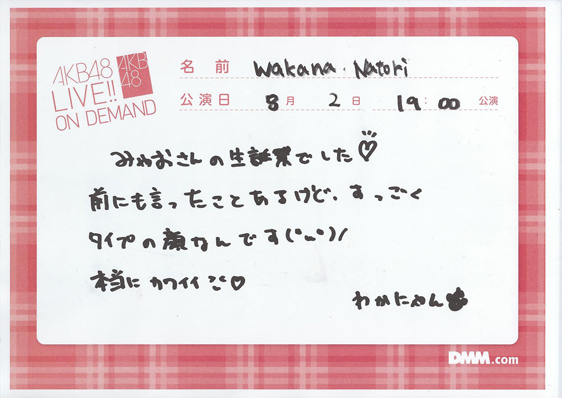 AKB48
LIVE!!
ON DEMAND
AKB
48
名前 Wakana. Natori
公演日 8月 2日 19:00 公演
みゃおさんの生誕祭でした♡
前にも言ったことあるけど、すっごく
タイプの顔なんです(°ω°)/
本当にカワイイ♡
わかにゃん
DMM.com